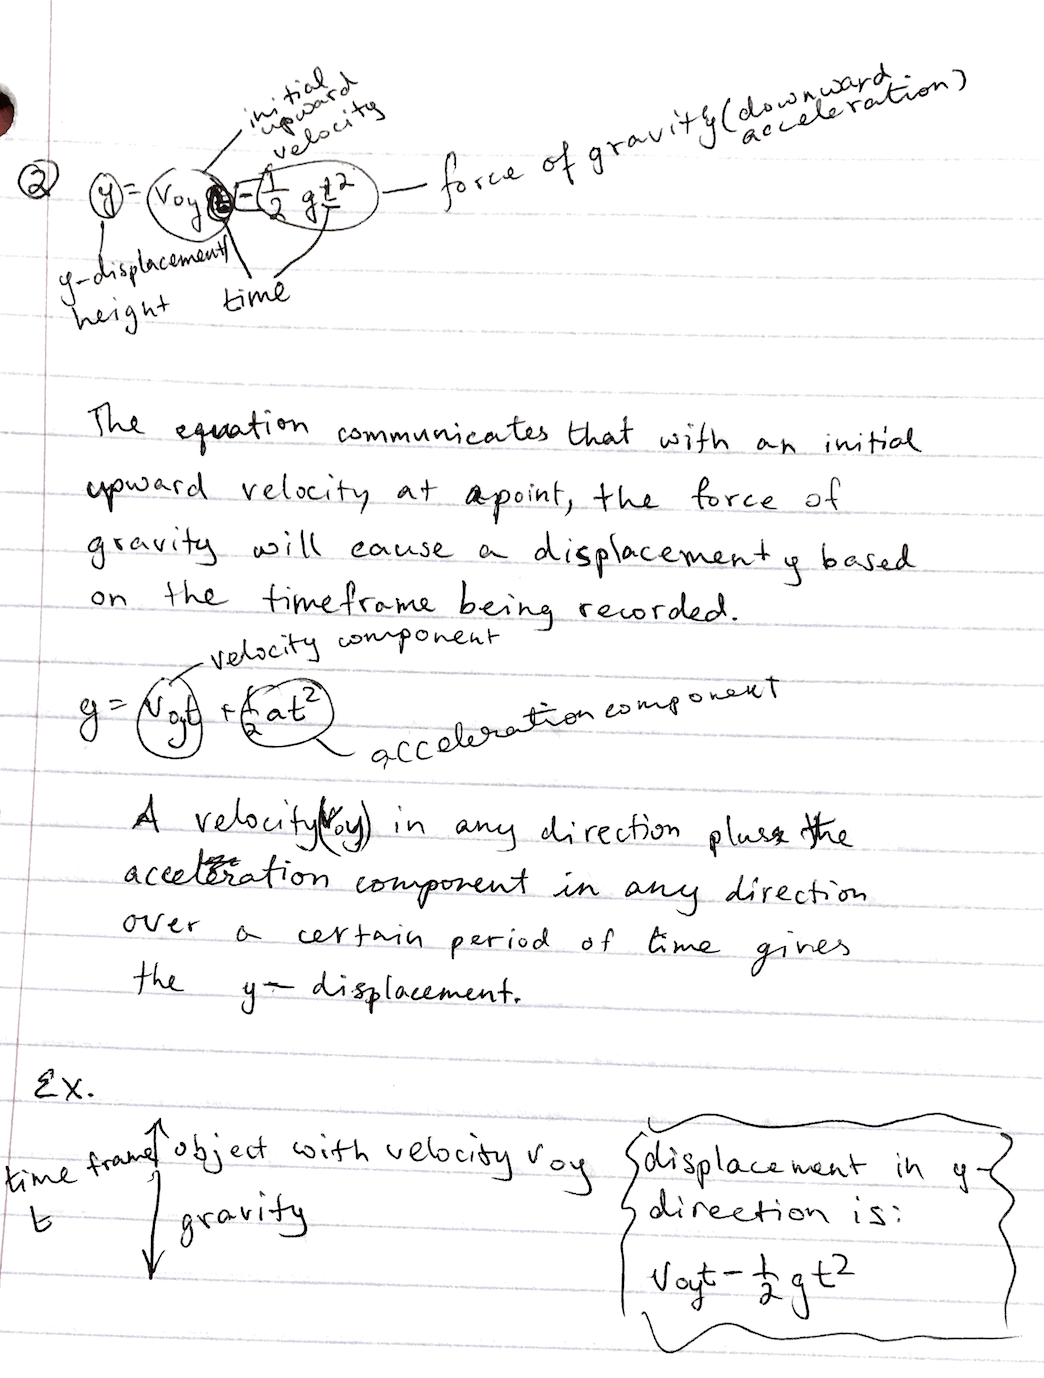 initial
upward
velocity
force of gravity (downward
acceleration)
② y = v₀y t - 1/2 gt²
y-displacement/
height
time
The equation communicates that with an initial
upward velocity at a point, the force of
gravity will cause a displacement y based
on the timeframe being recorded.
velocity component
y = v₀yt + 1/2 at²
acceleration component
A velocity (v₀y) in any direction plus the
acceleration component in any direction
over a certain period of time gives
the y-displacement.
Ex.
time frame
t
object with velocity v₀y
gravity
displacement in y-
direction is:
v₀yt - 1/2 gt²